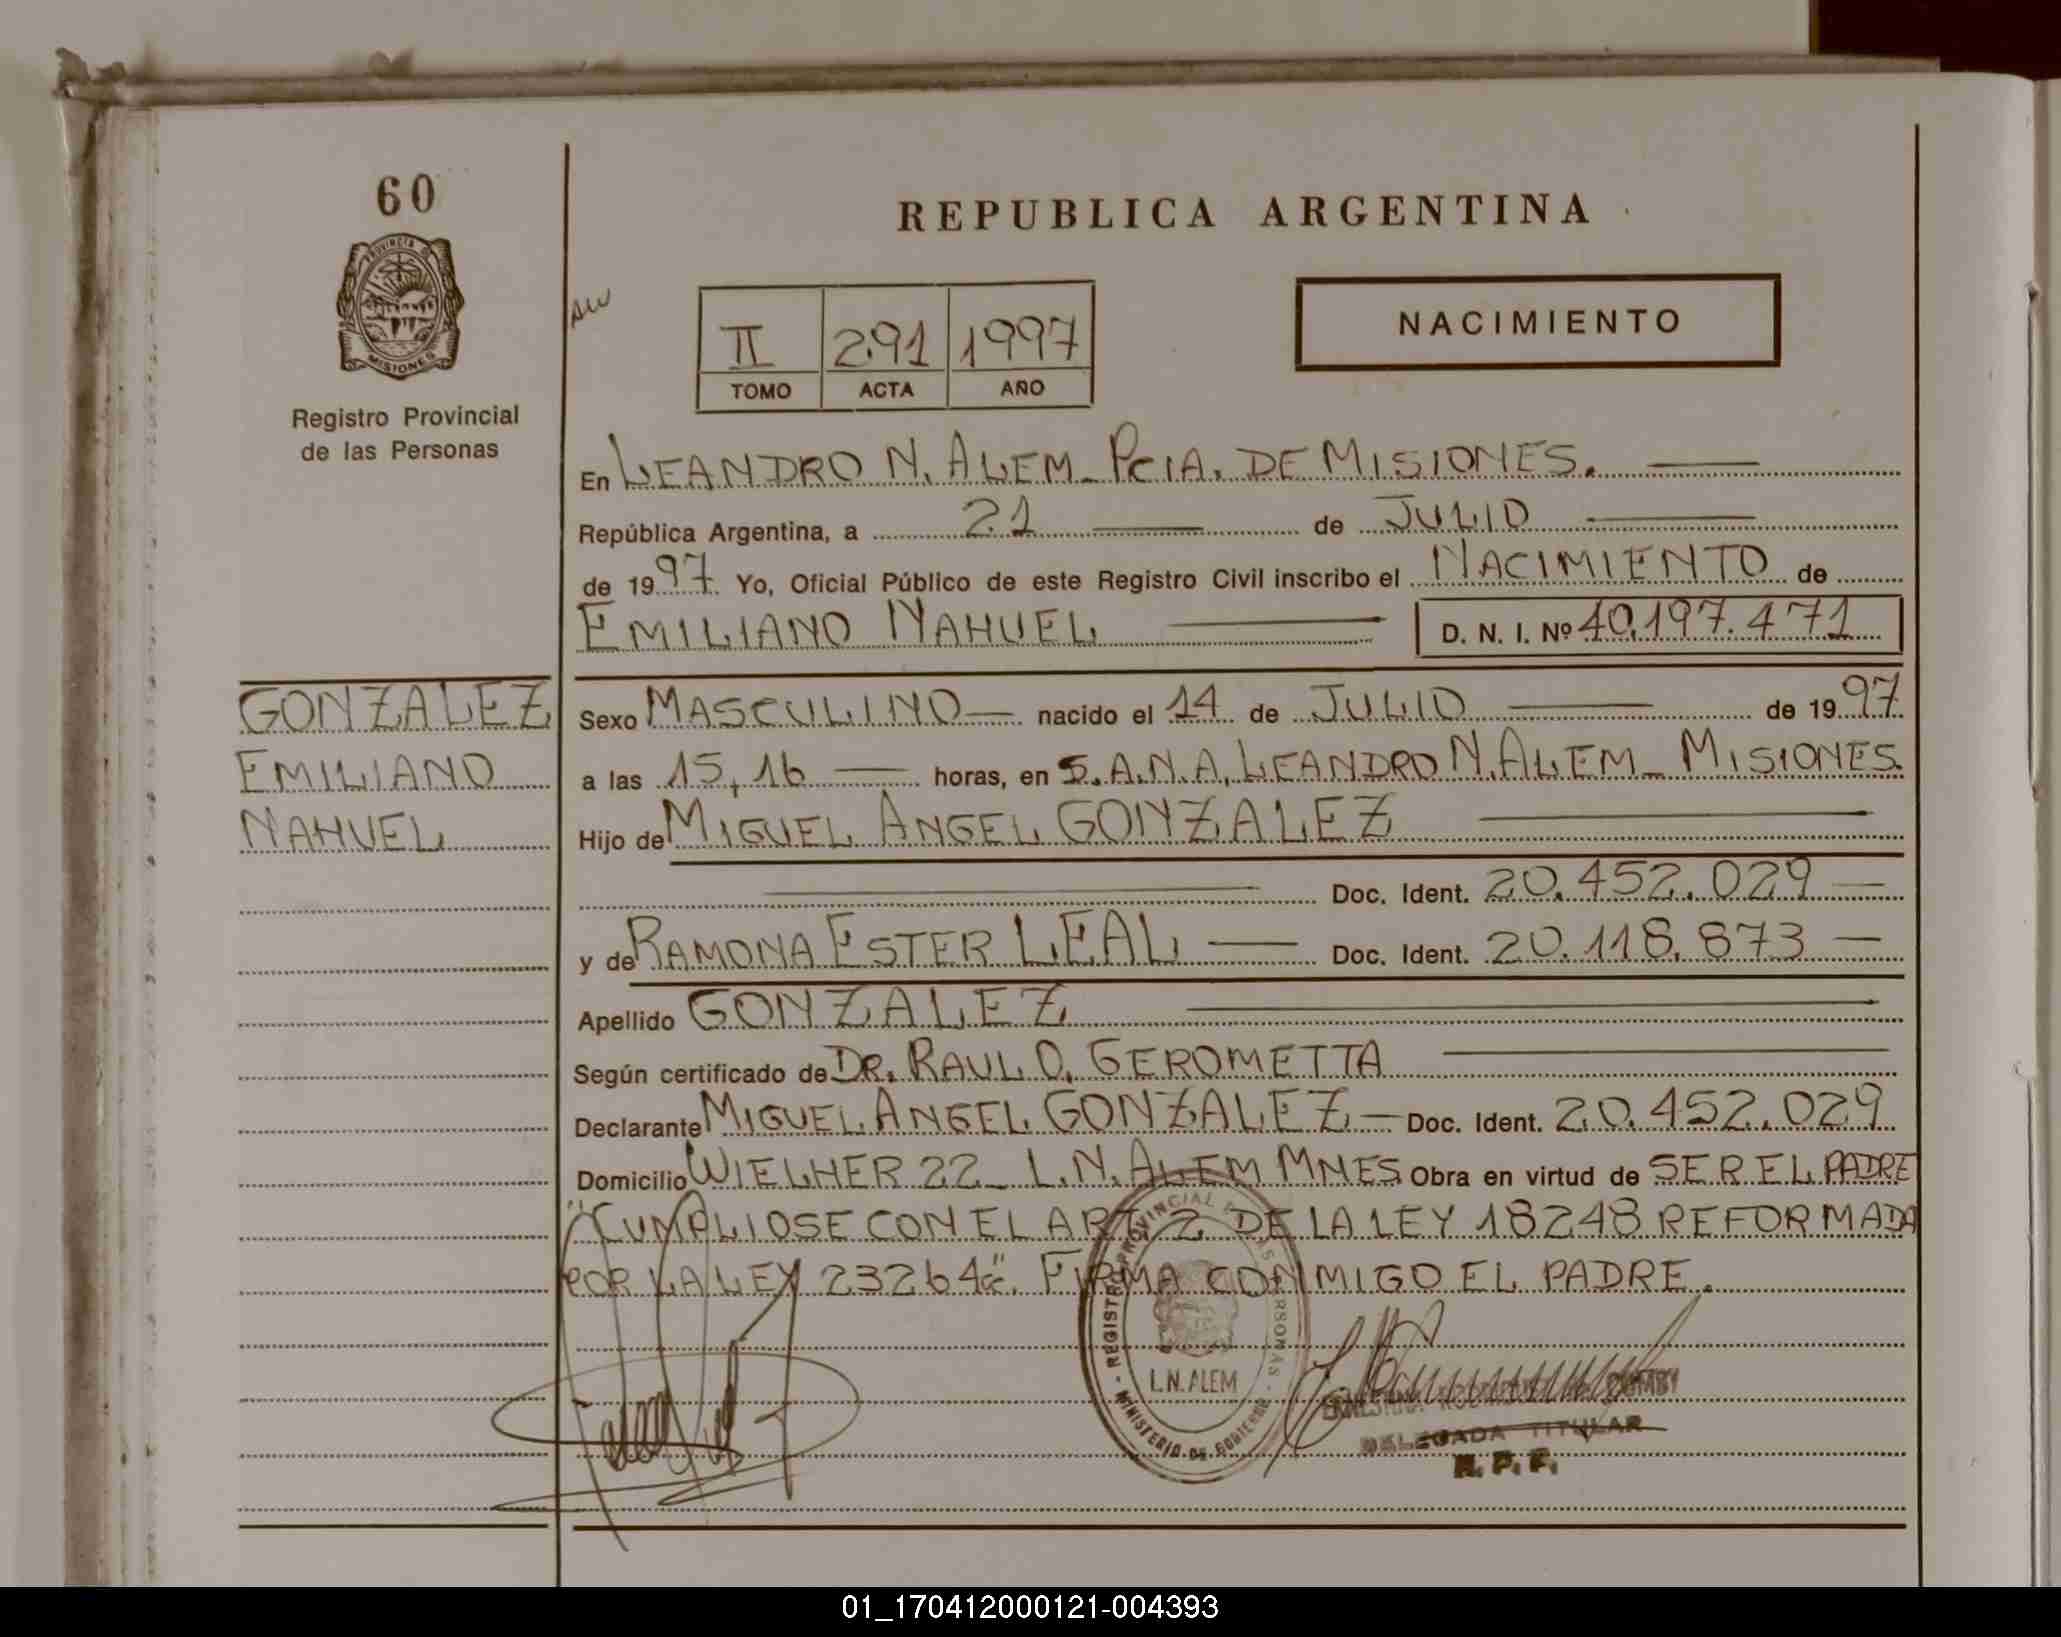 60
PROVINCIA D
MISIONES
Registro Provincial
de las Personas
REPUBLICA ARGENTINA
NACIMIENTO
II 291 1997
TOMO ACTA AÑO
En LEANDRO N. ALEM_ PCIA. DE MISIONES.
República Argentina, a 21 de JULIO
de 1997 Yo, Oficial Público de este Registro Civil inscribo el NACIMIENTO de
EMILIANO NAHUEL D. N. I. Nº 40.197.471
GONZALEZ
EMILIANO
NAHUEL
Sexo MASCULINO nacido el 14 de JULIO de 1997
a las 15,16 horas, en S.A.N.A, LEANDRO N. ALEM_ MISIONES.
Hijo de MIGUEL ANGEL GONZALEZ
Doc. Ident. 20.452.029
y de RAMONA ESTER LEAL Doc. Ident. 20.118.873
Apellido GONZALEZ
Según certificado de DR. RAUL O. GEROMETTA
Declarante MIGUEL ANGEL GONZALEZ Doc. Ident. 20.452.029
Domicilio WIELHER 22_ L.N. ALEM MNES Obra en virtud de SER EL PADRE
"CUMPLIOSE CON EL ART 2 DE LA LEY 18248 REFORMADA
POR LA LEY 23264". FIRMA CONMIGO EL PADRE.
REGISTRO PROVINCIAL DE LAS PERSONAS
L.N. ALEM
MINISTERIO DE GOBIERNO
DELEGADA TITULAR
R. P. P.
01_170412000121-004393